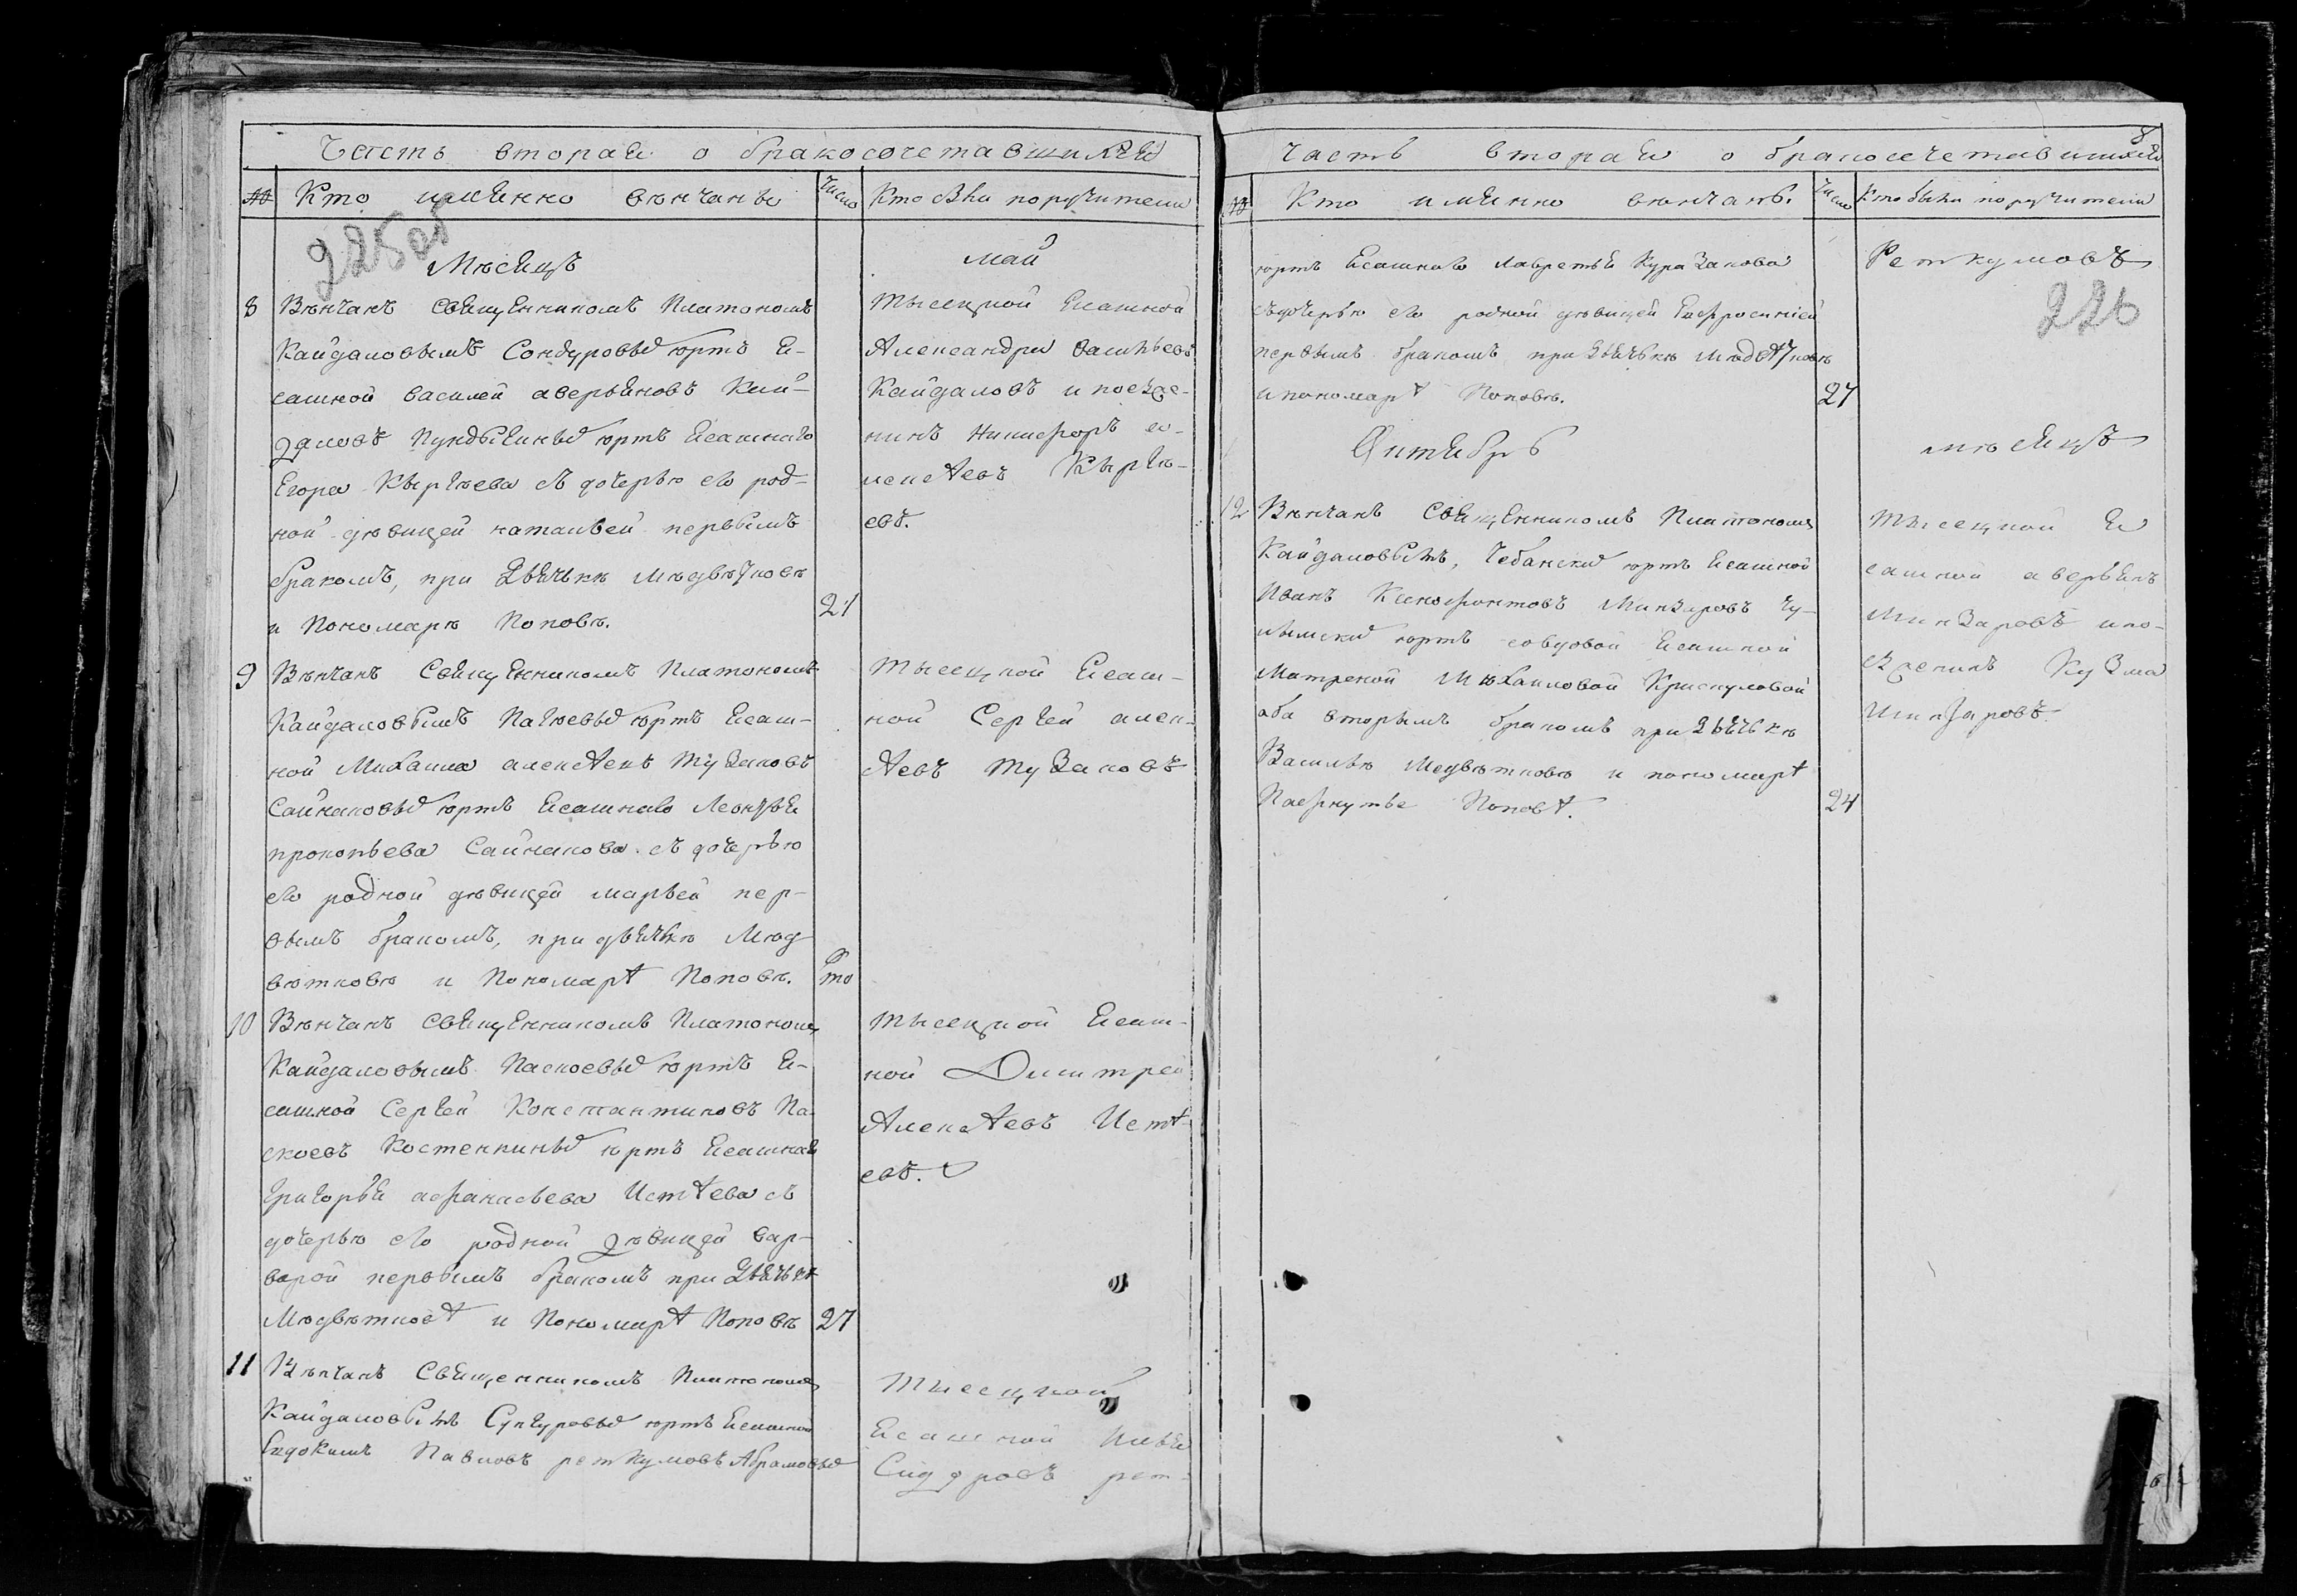 Часть вторая о бракосочетавшихся
№ Кто именно вѣнчанъ Число Кто были поручители
225об
Мѣсяцъ Май
8 Вѣнчанъ Священникомъ Платономъ
Кайдаловымъ Сондуровыхъ юртъ Я-
сашной Василей Аверьяновъ Кай-
даловъ Юртъ Ясашнаго
Егора Кыргѣева съ дочерью его род-
ной дѣвицей Натальей первымъ
бракомъ, при дьячкѣ Медвѣтковѣ
и Пономарѣ Поповѣ. 21
Тысецкой Ясашной
Александръ Васильевъ
Кайдаловъ и поезже-
нинъ Никифоръ
евъ.
9 Вѣнчанъ Священникомъ Платономъ
Кайдаловымъ юртъ Ясаш-
ной Михаила Тузаковъ
Сайнаковыхъ юртъ Ясашнаго Леонтья
Прокопьева Сайнакова съ дочерью
его родной дѣвицей Марьей пер-
вымъ бракомъ, при дьячкѣ Мед-
вѣтковѣ и Пономарѣ Поповѣ.
Тысецкой Ясаш-
ной Сергей Алек-
сѣевъ Тузаковъ
10 Вѣнчанъ Священникомъ Платономъ
Кайдаловымъ Паскоевыхъ юртъ Я-
сашной Сергей Константиновъ Па-
скоевъ Костенкиныхъ юртъ Ясашнаго
Григорья Афанасьева Истѣева съ
дочерью его родной дѣвицей Вар-
варой первымъ бракомъ при дьячкѣ
Медвѣтковѣ и Пономарѣ Поповѣ 27
Тысецкой Ясаш-
ной Дмитрей
Алексѣевъ Истѣ-
евъ.
11 Вѣнчанъ Священникомъ Платономъ
Кайдаловымъ юртъ Ясашной
Евдокимъ Павловъ Реткумовъ Абрамовыхъ
Тысецкой
Ясашной Илья
Сидоровъ Рет-
8
Часть вторая о бракосочетавшихся
№ Кто именно вѣнчанъ. Число Кто были поручители
юртъ Ясашнаго Лаврентья Куразакова
съ дочерью его родной дѣвицей Евфросиніей
первымъ бракомъ при дьячкѣ Медвѣтковѣ
и пономарѣ Поповѣ. 27
Реткумовъ
226
Октябрь мѣсяцъ
12 Вѣнчанъ Священникомъ Платономъ
Кайдаловымъ, Чебанскихъ юртъ Ясашной
Иванъ Ксенофонтовъ Минзаровъ Чу-
лымскихъ юртъ со вдовой Ясашной
Матреной Михаиловой
оба вторымъ бракомъ при дьячкѣ
Васильѣ Медвѣтковѣ и пономарѣ
Пафнутье Поповѣ. 24
Тысецкой Я
сашной Аверьянъ
Минзаровъ и по-
езженинъ Кузма
Минзаровъ.